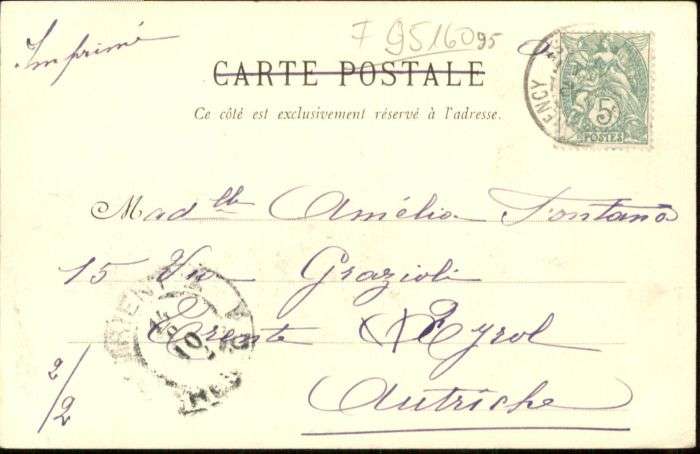 Imprimé
F 95160 95
CARTE POSTALE
Ce côté est exclusivement réservé à l'adresse.
ENCY
5c
POSTES
Madlle Amélia Fontana
15 Via Grazioli
Trente Tyrol
Autriche
2/2
TRIENT
10